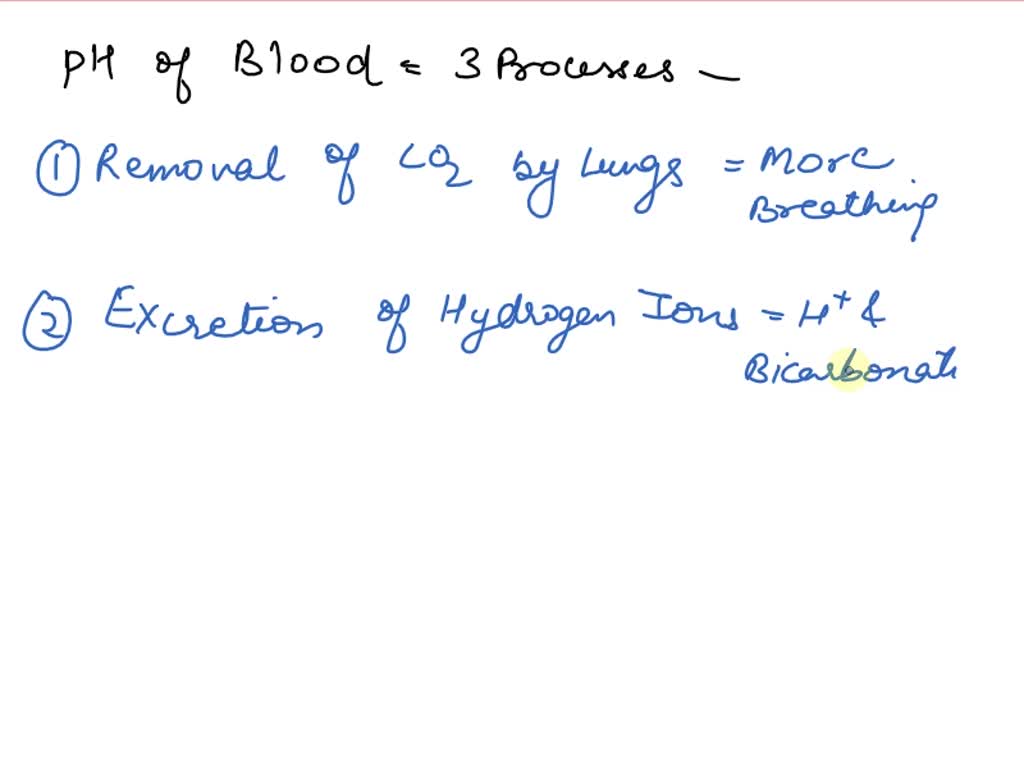 pH of Blood = 3 Processes —
① Removal of CO2 by Lungs = More
Breathing
② Excretion of Hydrogen Ions = H+ &
Bicarbonate